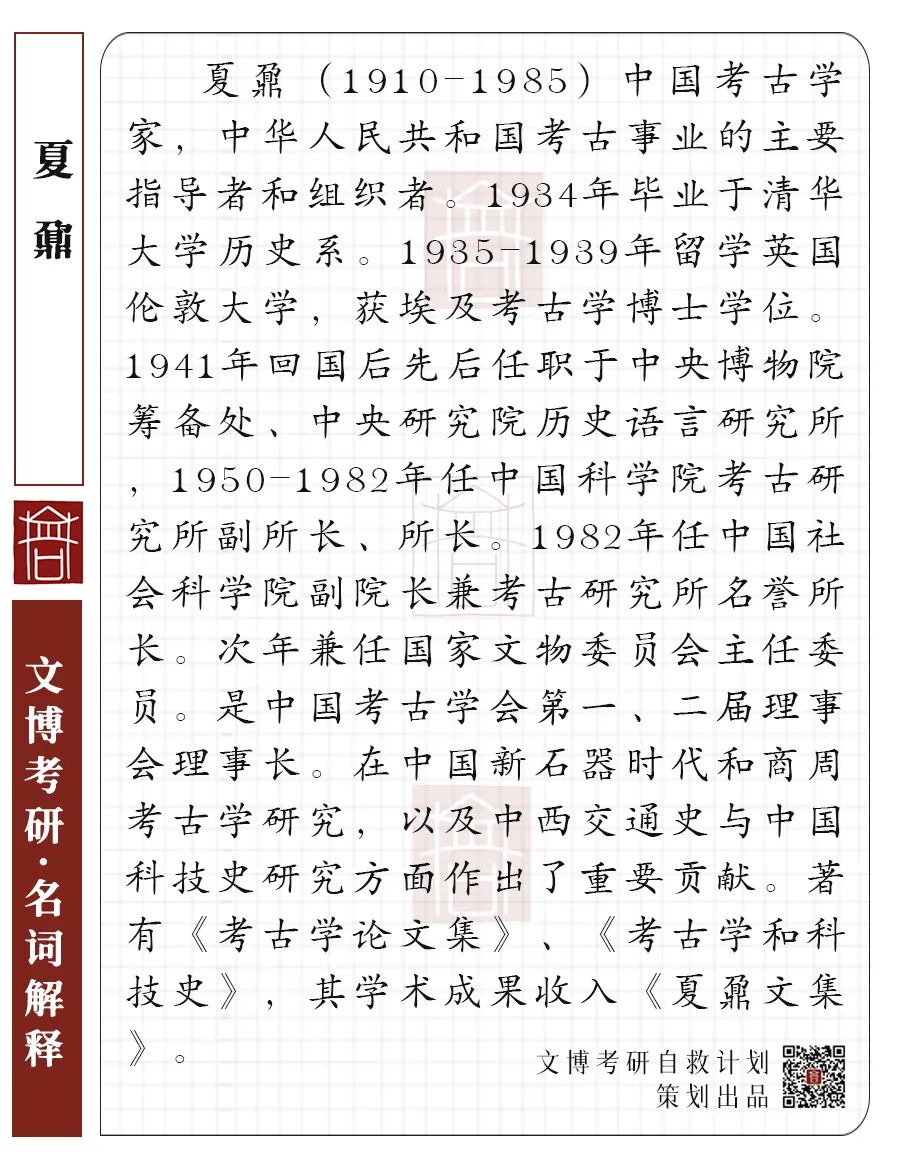 夏鼐
文博考研·名词解释
夏鼐（1910-1985）中国考古学
家，中华人民共和国考古事业的主要
指导者和组织者。1934年毕业于清华
大学历史系。1935-1939年留学英国
伦敦大学，获埃及考古学博士学位。
1941年回国后先后任职于中央博物院
筹备处、中央研究院历史语言研究所
，1950-1982年任中国科学院考古研
究所副所长、所长。1982年任中国社
会科学院副院长兼考古研究所名誉所
长。次年兼任国家文物委员会主任委
员。是中国考古学会第一、二届理事
会理事长。在中国新石器时代和商周
考古学研究，以及中西交通史与中国
科技史研究方面作出了重要贡献。著
有《考古学论文集》、《考古学和科
技史》，其学术成果收入《夏鼐文集
》。
文博考研自救计划
策划出品